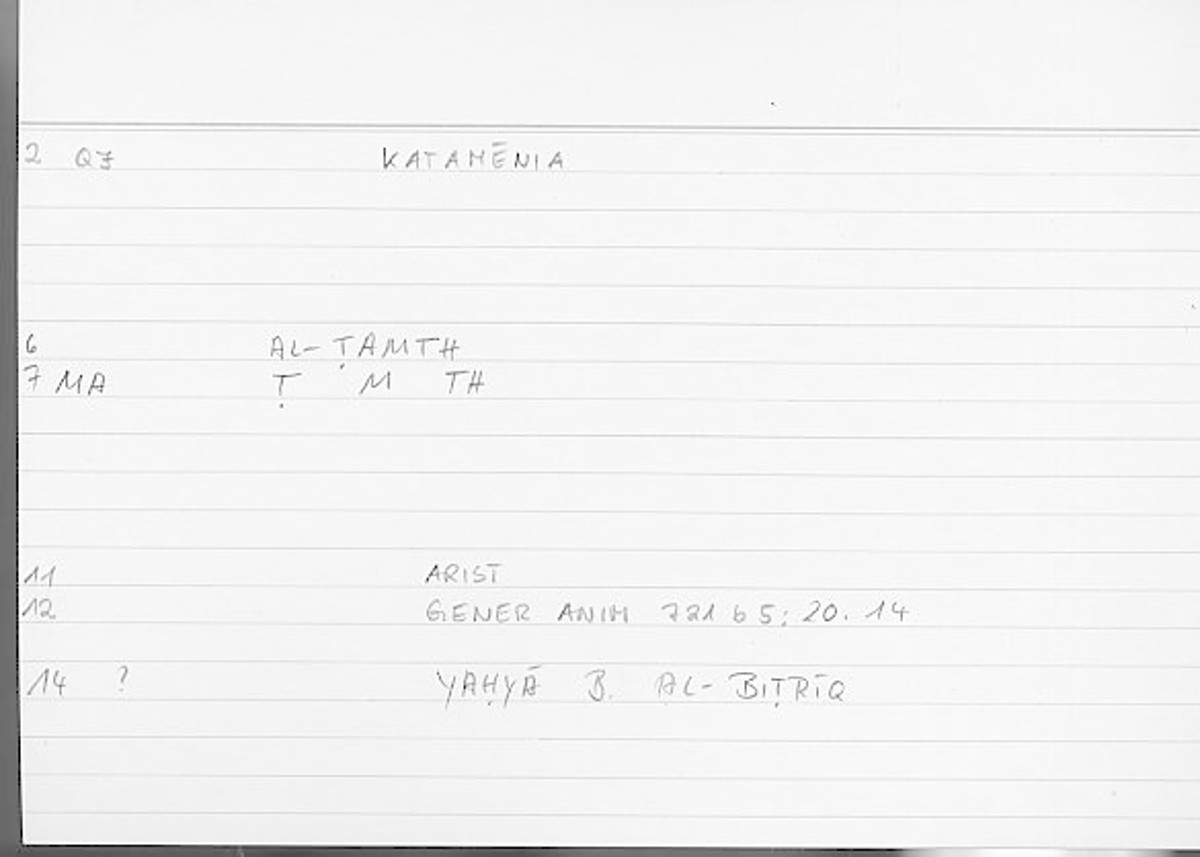 2 QZ KATAMĒNIA
6 AL-ṬAMTH
7 MA Ṭ M TH
11 ARIST
12 GENER ANIM 721 b 5; 20.14
14 ? YAḤYĀ B. AL-BIṬRĪQ